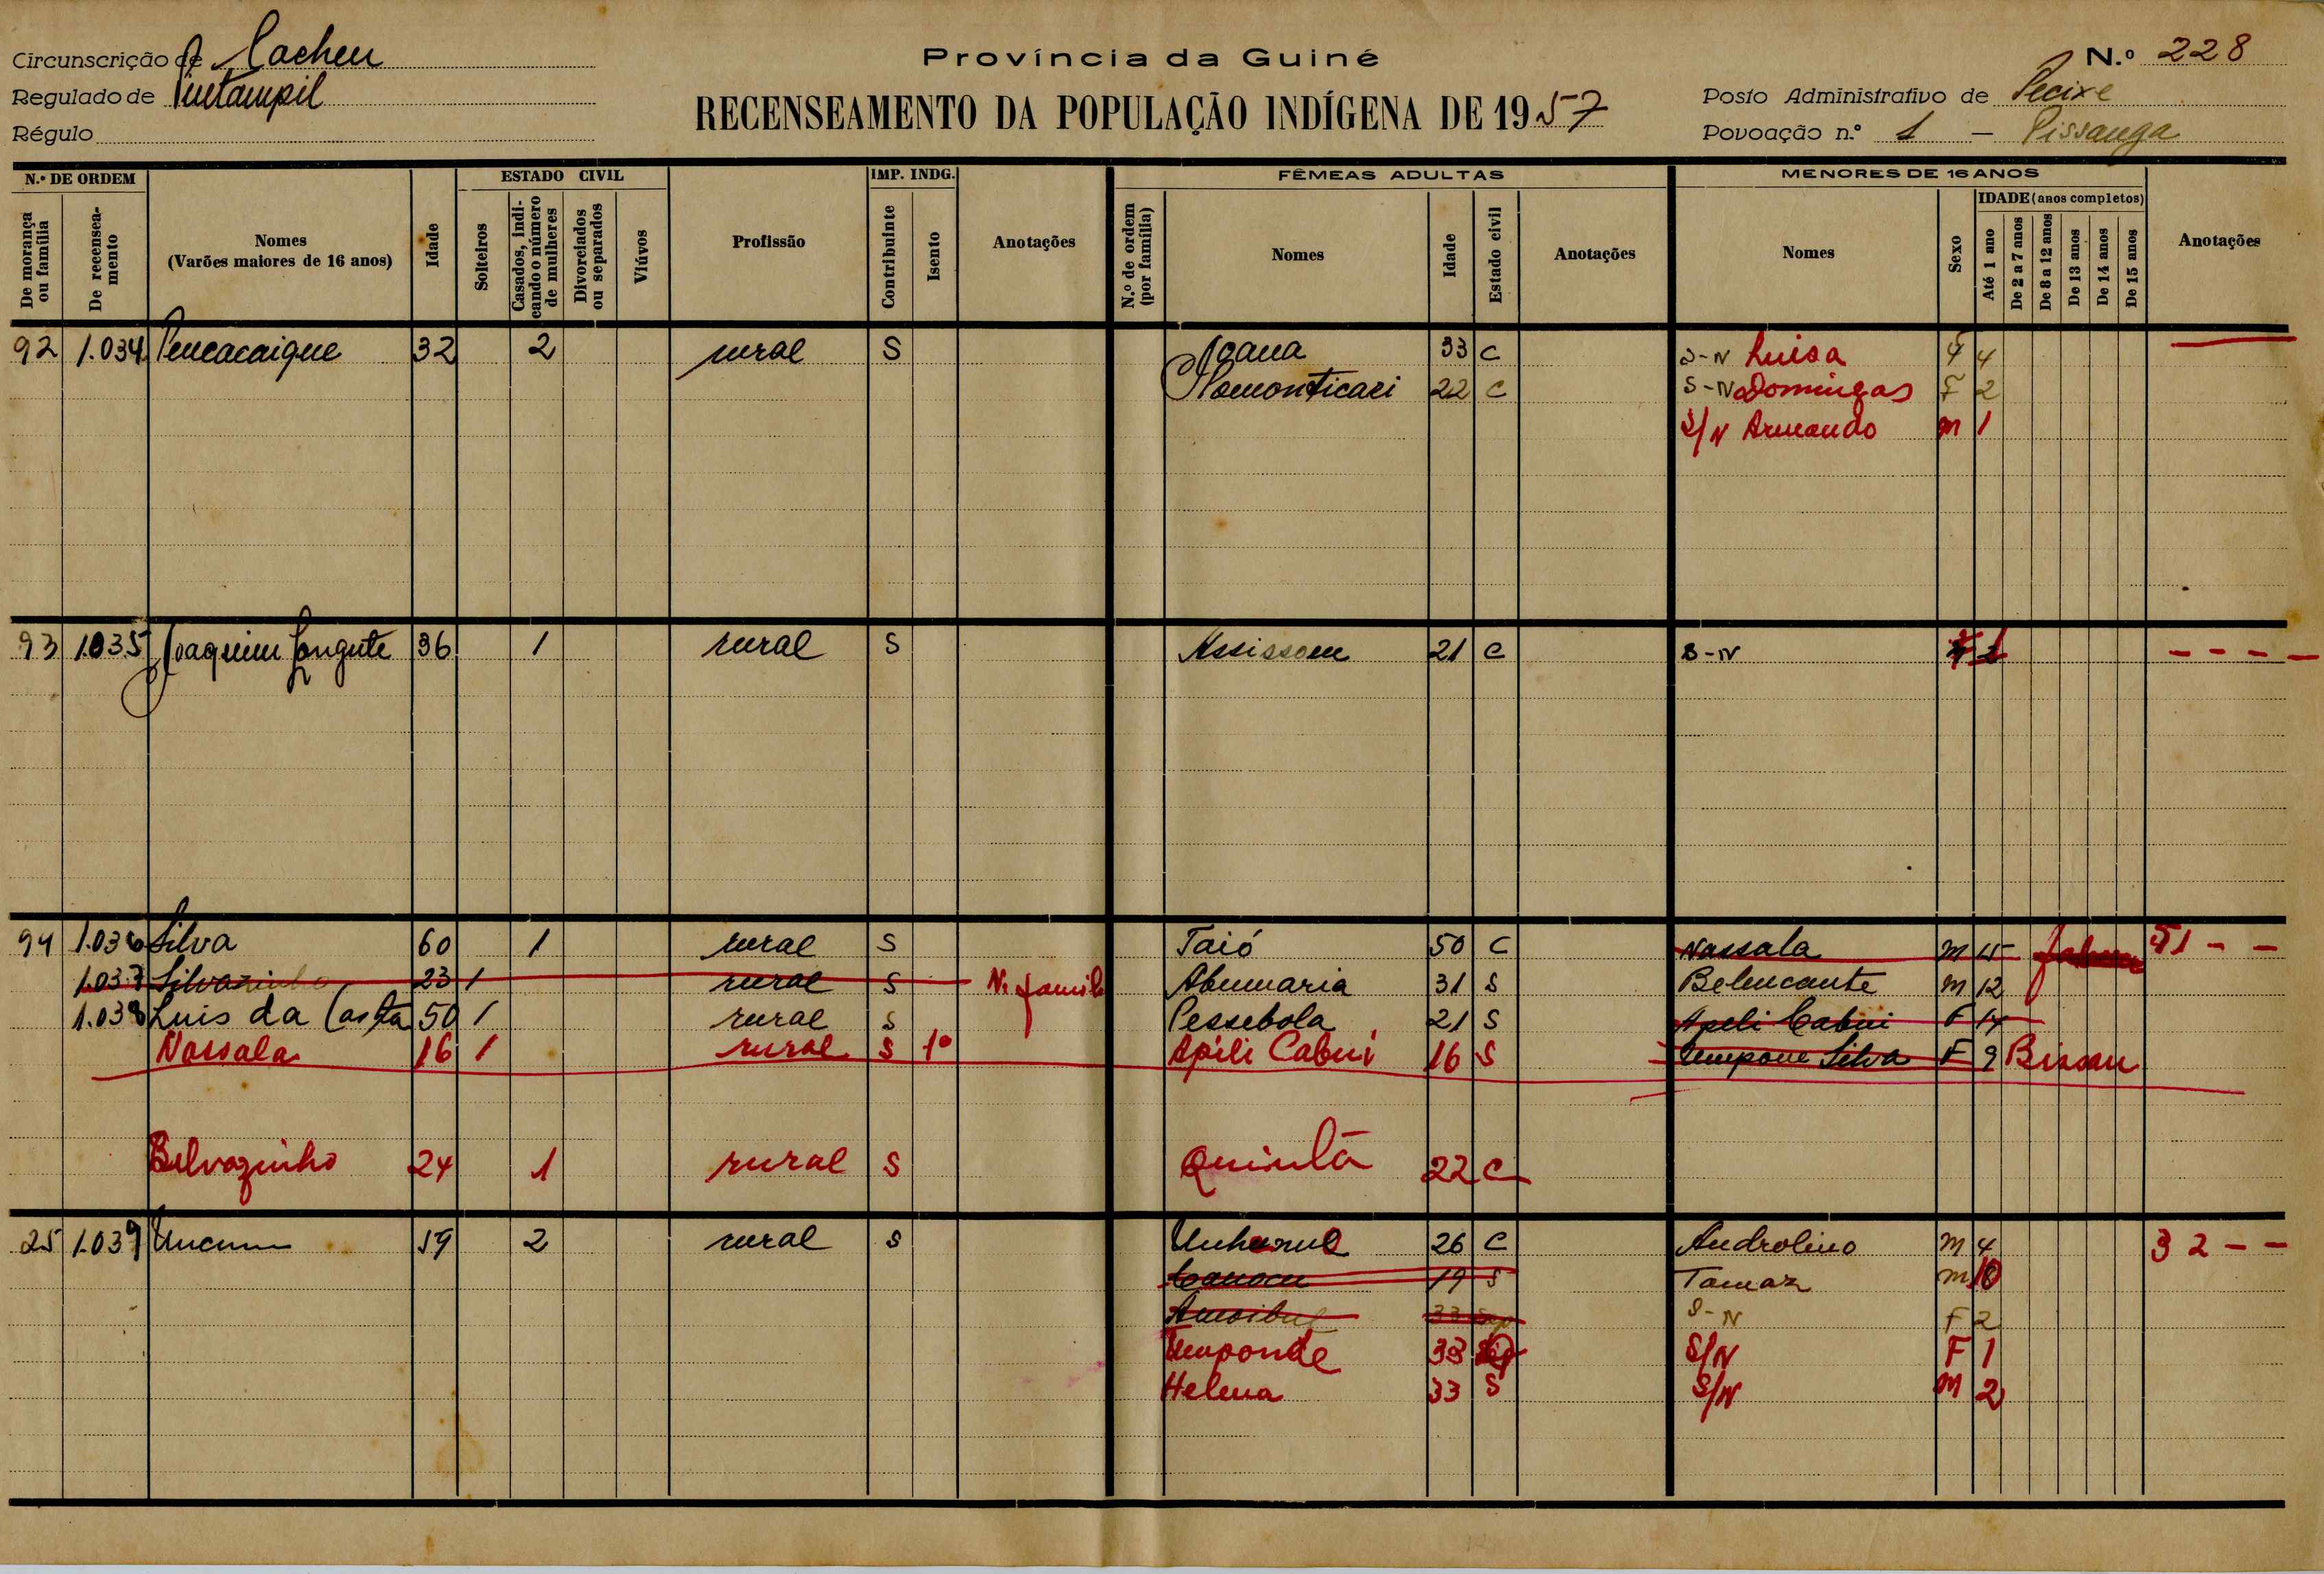 Circunscrição de Cacheu
Regulado de
Régulo
Província da Guiné
RECENSEAMENTO DA POPULAÇÃO INDÍGENA DE 1957
N.º 228
Posto Administrativo de Pecixe
Povoação n.º 1 — Pissanga
N.º DE ORDEM
De morança ou família
De recenseamento
Nomes
(Varões maiores de 16 anos)
Idade
ESTADO CIVIL
Solteiros
Casados, indicando o número de mulheres
Divorciados ou separados
Viúvos
Profissão
IMP. INDG.
Contribuinte
Isento
Anotações
FÊMEAS ADULTAS
N.º de ordem (por família)
Nomes
Idade
Estado civil
Anotações
MENORES DE 16 ANOS
Nomes
Sexo
IDADE (anos completos)
Até 1 ano
De 2 a 7 anos
De 8 a 12 anos
De 13 anos
De 14 anos
De 15 anos
Anotações
92 1.034 32 2 rural S Joana 33 C S-N Luisa F 4
22 C S-N Domingas F 2
S/N Armando M 1
93 1.035 Joaquim 36 1 rural S Assissom 21 C S-N
94 1.036 Silva 60 1 rural S Taió 50 C Nassala M 15 51 - -
1.037 Silvazinho 23 1 rural S Abumaria 31 S Belucante M 12
1.038 Luis da Costa 50 1 rural S Pessebola 21 S Apeli Cabui F 14
Nassala 16 1 rural S 1º Apili Cabui 16 S Umpone Silva F 9 Bissau
24 1 rural S Quintã 22 C
25 1.039 59 2 rural S 26 C Androlino M 4 32 - -
19 S Tamaz M 10
33 S-N F 2
Umponde 33 S/N F 1
Helena 33 S S/N M 2